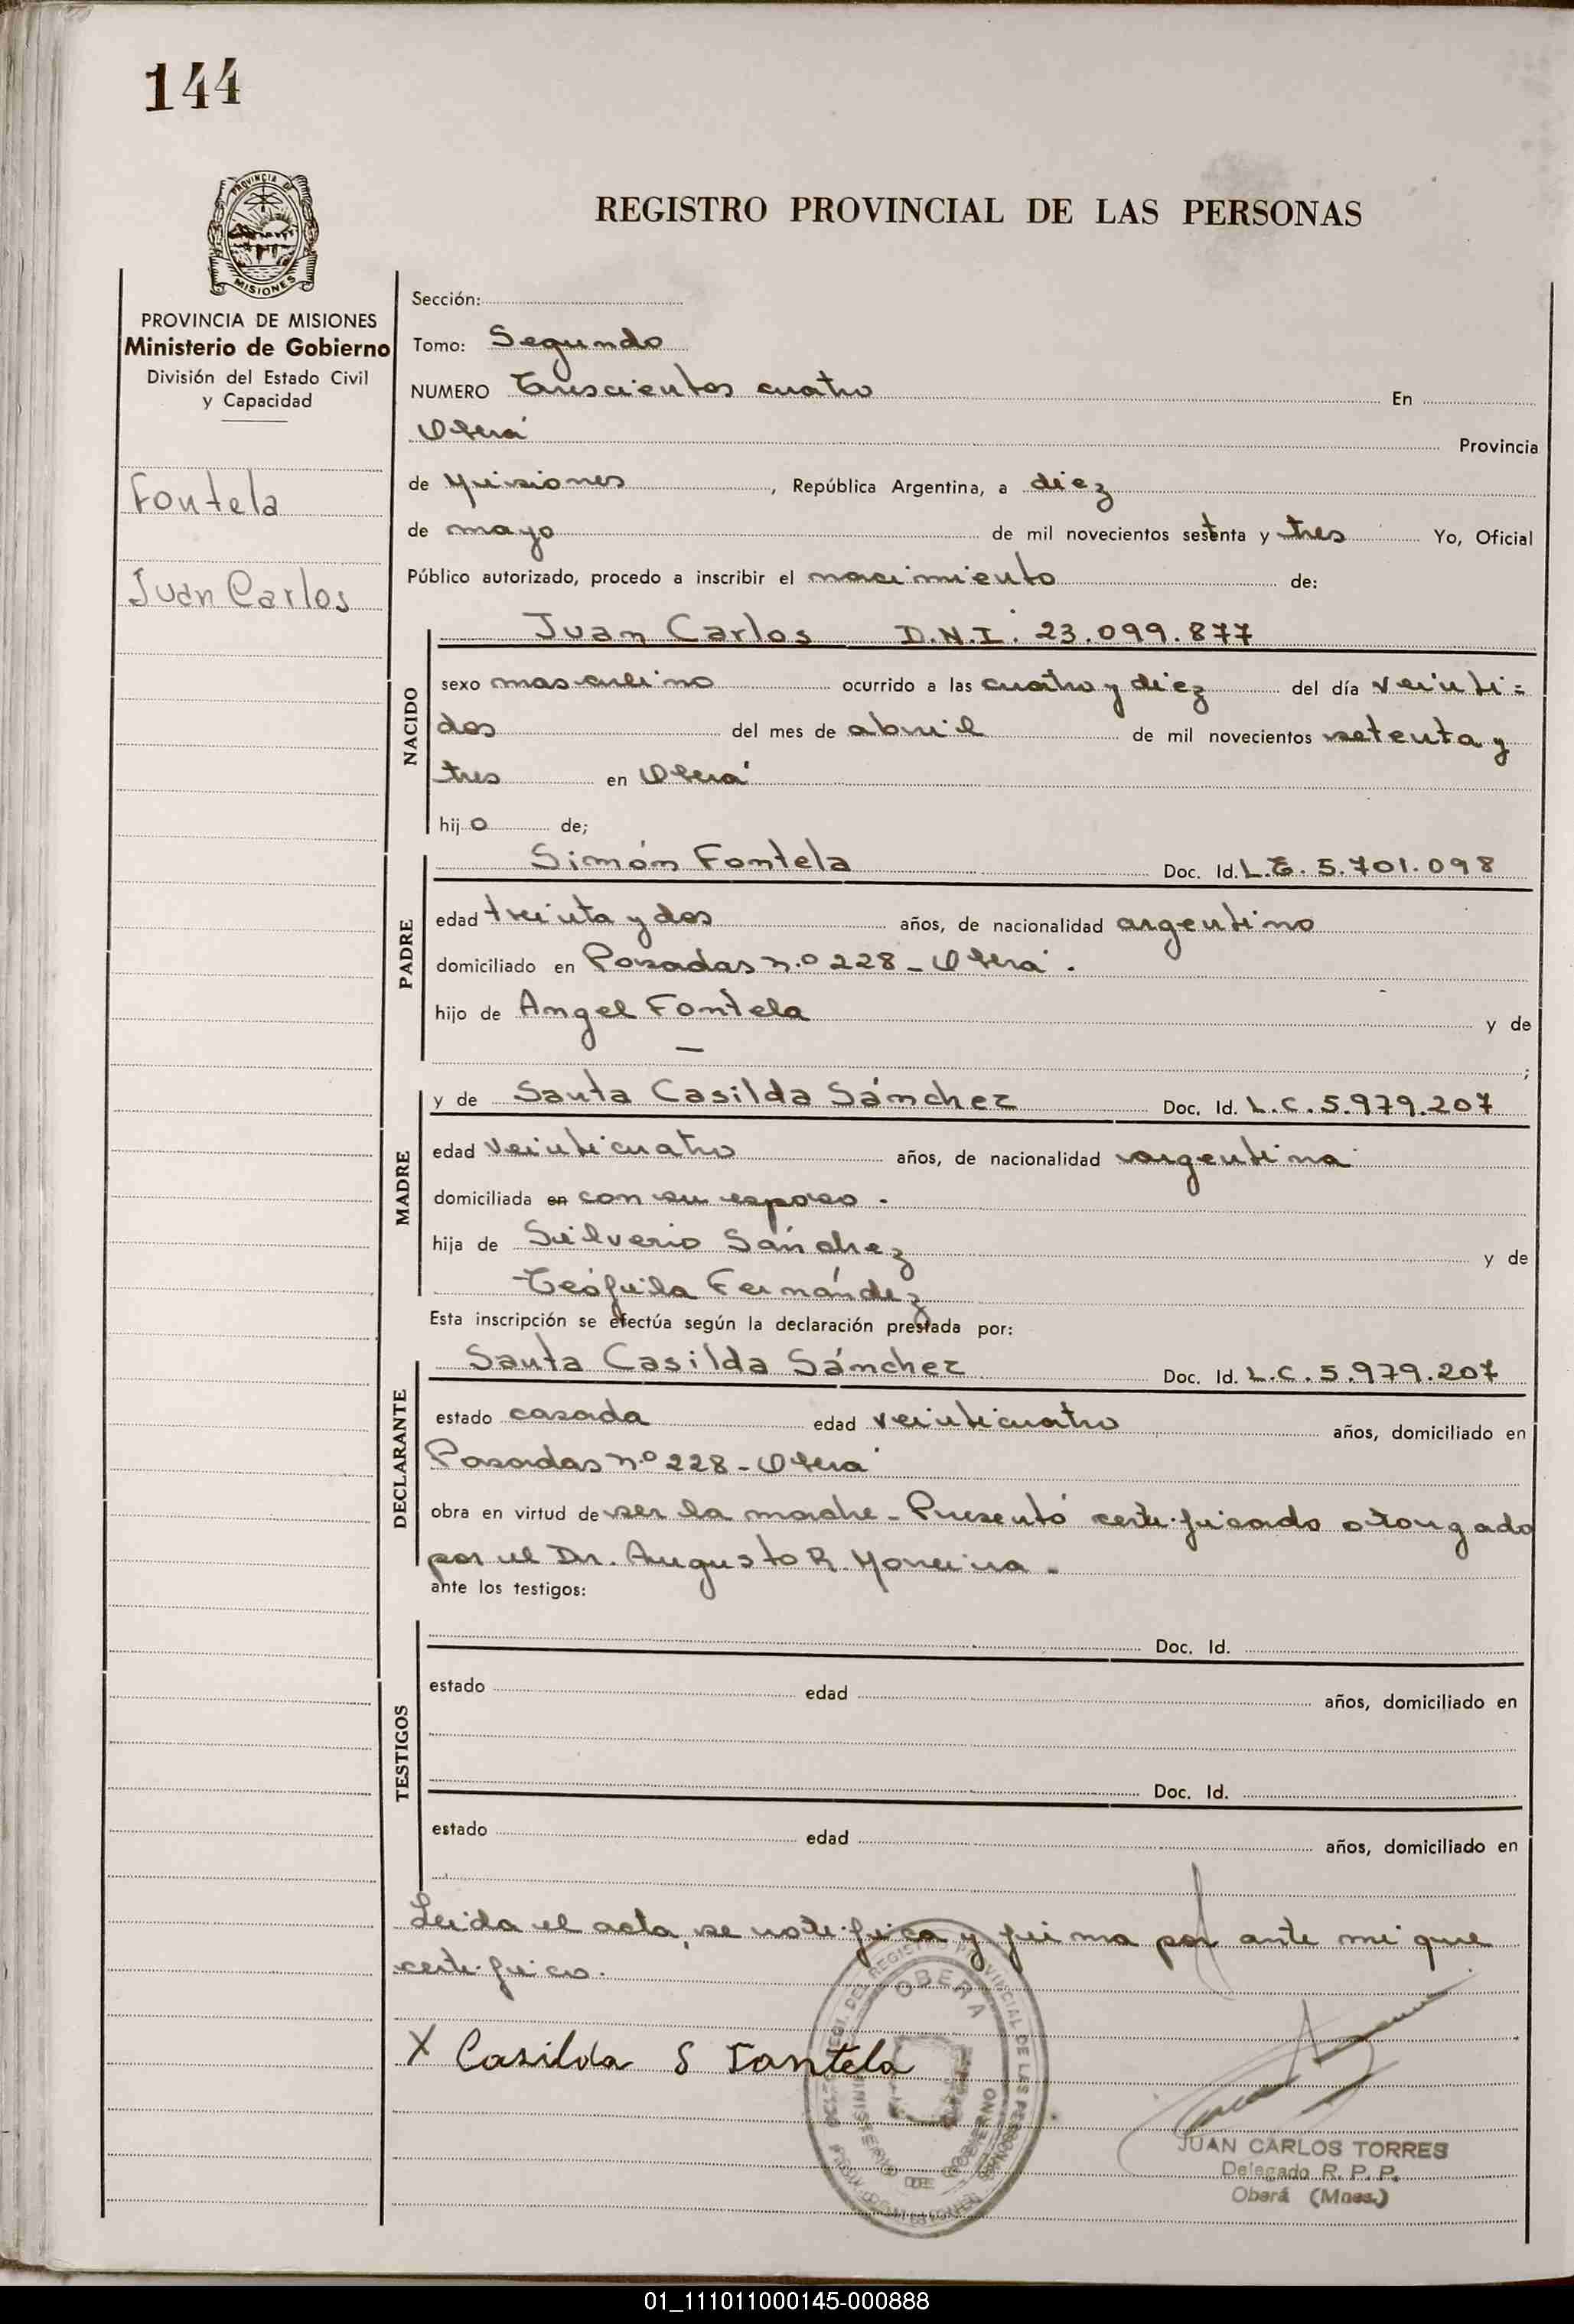 144
PROVINCIA DE
MISIONES
REGISTRO PROVINCIAL DE LAS PERSONAS
PROVINCIA DE MISIONES
Ministerio de Gobierno
División del Estado Civil
y Capacidad
Fontela
Juan Carlos
Sección:
Tomo: Segundo
NUMERO Trescientos cuatro En
Oberá Provincia
de Misiones, República Argentina, a diez
de mayo de mil novecientos setenta y tres Yo, Oficial
Público autorizado, procedo a inscribir el nacimiento de:
NACIDO
Juan Carlos D.N.I. 23.099.877
sexo masculino ocurrido a las cuatro y diez del día veinti=
dos del mes de abril de mil novecientos setenta y
tres en Oberá
hijo de;
PADRE
Simón Fontela Doc. Id. L.E. 5.701.098
edad treinta y dos años, de nacionalidad argentino
domiciliado en Posadas n.º 228 - Oberá.
hijo de Angel Fontela y de
— ;
MADRE
y de Santa Casilda Sánchez Doc. Id. L.C. 5.979.207
edad veinticuatro años, de nacionalidad argentina
domiciliada en con su esposo.
hija de Silverio Sánchez y de
Teófila Fernández
Esta inscripción se efectúa según la declaración prestada por:
DECLARANTE
Santa Casilda Sánchez Doc. Id. L.C. 5.979.207
estado casada edad veinticuatro años, domiciliado en
Posadas n.º 228 - Oberá
obra en virtud de ser la madre - Presentó certificado otorgado
por el Dr. Augusto R. Moreira.
ante los testigos:
TESTIGOS
Doc. Id.
estado edad años, domiciliado en
Doc. Id.
estado edad años, domiciliado en
Leída el acta, se notifica y firma por ante mi que
certifico.
X Casilda S Fontela
OBERA
JUAN CARLOS TORRES
Delegado R. P. P.
Oberá (Mnes.)
01_111011000145-000888